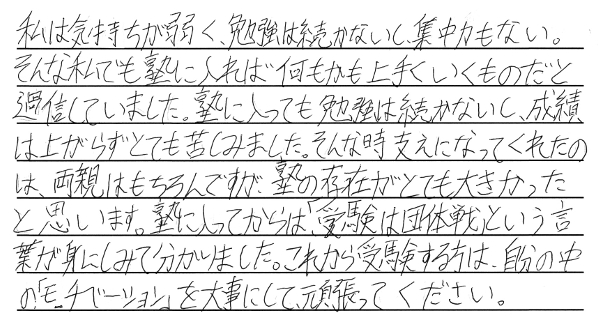 私は気持ちが弱く、勉強は続かないし、集中力もない。
そんな私でも塾に入れば何もかも上手くいくものだと
過信していました。塾に入っても勉強は続かないし、成績
は上がらずとても苦しみました。そんな時支えになってくれたの
は、両親はもちろんですが、塾の存在がとても大きかった
と思います。塾に入ってからは、「受験は団体戦」という言
葉が身にしみて分かりました。これから受験する方は、自分の中
の「モチベーション」を大事にして、頑張ってください。